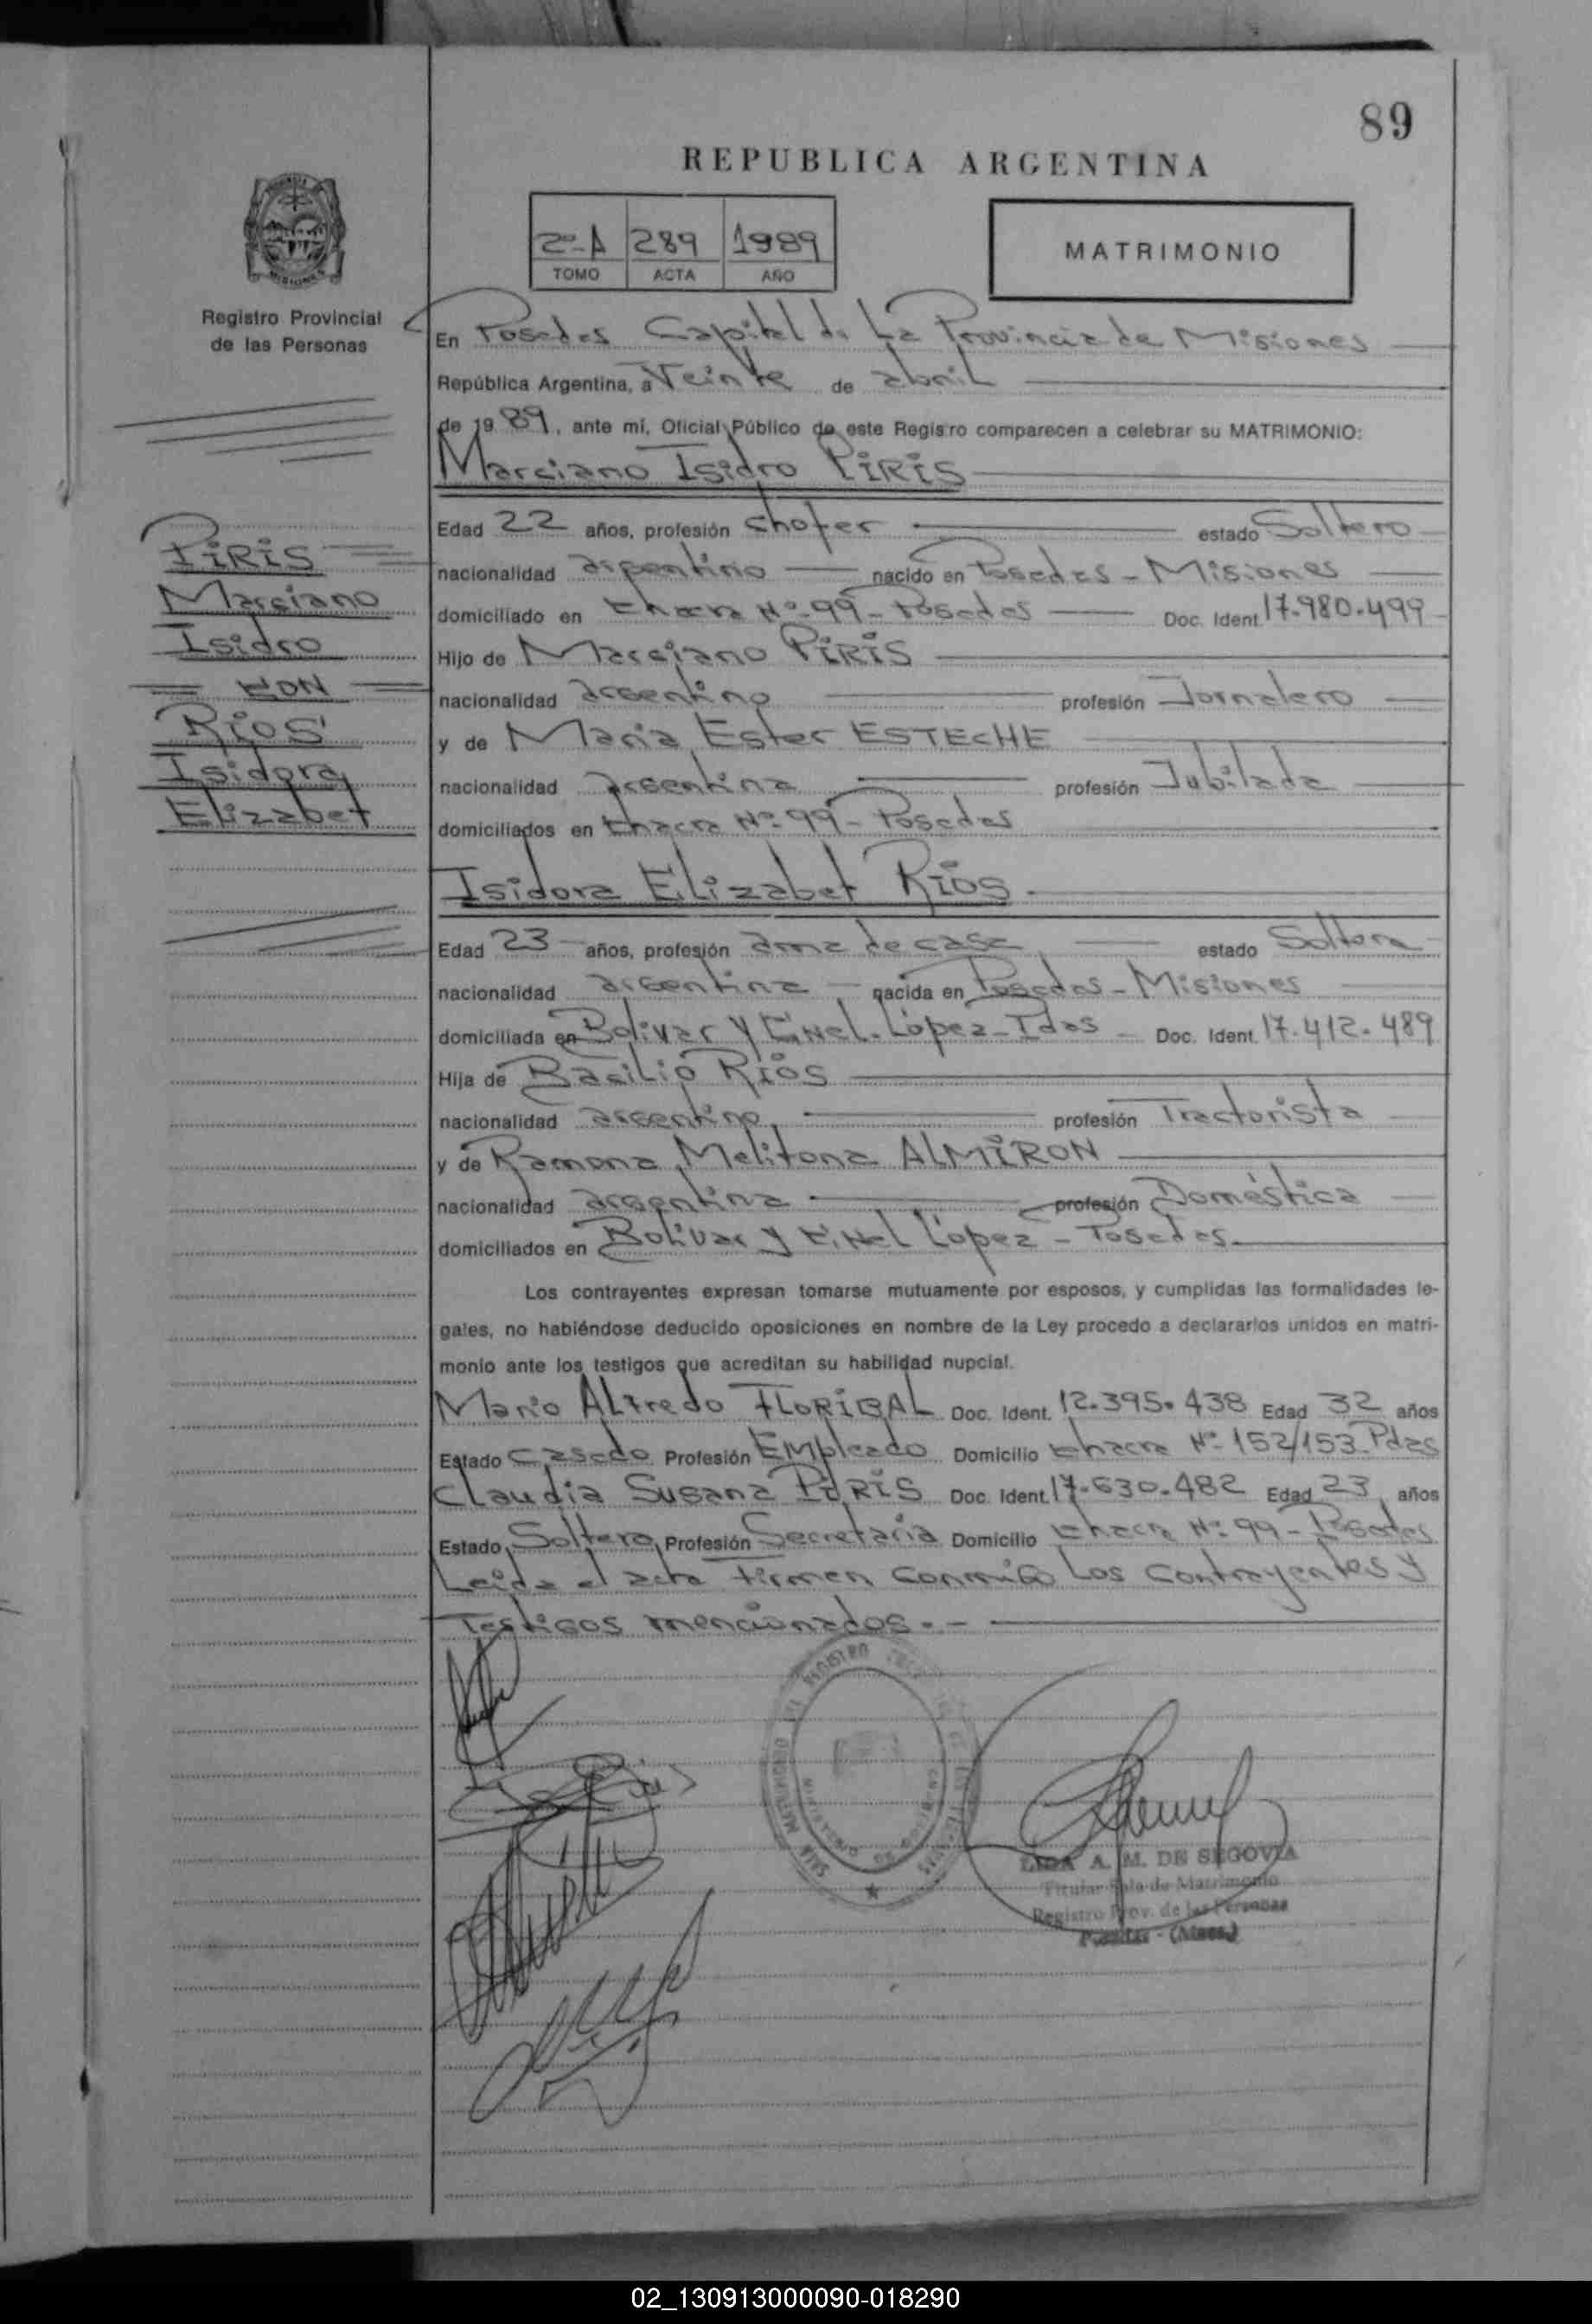 89
REPUBLICA ARGENTINA
2º-A 289 1989
TOMO ACTA AÑO
MATRIMONIO
Registro Provincial
de las Personas
En Posadas Capital de La Provincia de Misiones
República Argentina, a Veinte de abril
de 1989, ante mí, Oficial Público de este Registro comparecen a celebrar su MATRIMONIO:
Marciano Isidro PIRIS
Edad 22 años, profesión chofer estado Soltero
nacionalidad argentino nacido en Posadas - Misiones
domiciliado en Chacra Nº 99 - Posadas Doc. Ident. 17.980.499
Hijo de Marciano PIRIS
nacionalidad argentino profesión Jornalero
y de Maria Ester ESTECHE
nacionalidad argentina profesión Jubilada
domiciliados en Chacra Nº 99 - Posadas
PIRIS
Marciano
Isidro
CON
RIOS
Isidora
Elizabet
Isidora Elizabet RIOS
Edad 23 años, profesión ama de casa estado Soltera
nacionalidad argentina nacida en Posadas - Misiones
domiciliada en Bolivar y Lopez - Pdas - Doc. Ident. 17.412.489
Hija de Basilio RIOS
nacionalidad argentino profesión Tractorista
y de Ramona Melitona ALMIRON
nacionalidad argentina profesión Doméstica
domiciliados en Bolivar y Lopez - Posadas
Los contrayentes expresan tomarse mutuamente por esposos, y cumplidas las formalidades le-
gales, no habiéndose deducido oposiciones en nombre de la Ley procedo a declararlos unidos en matri-
monio ante los testigos que acreditan su habilidad nupcial.
Mario Alfredo FLORIBAL Doc. Ident. 12.395.438 Edad 32 años
Estado Casado Profesión Empleado Domicilio Chacra Nº 152/153 Pdas
Claudia Susana PIRIS Doc. Ident. 17.630.482 Edad 23 años
Estado Soltera Profesión Secretaria Domicilio Chacra Nº 99 - Posadas
Leida el acta firman conmigo Los Contrayentes y
Testigos mencionados. -
LIDA A. M. DE SEGOVIA
Titular Sala de Matrimonio
Registro Prov. de las Personas
Posadas - (Mnes.)
02_130913000090-018290